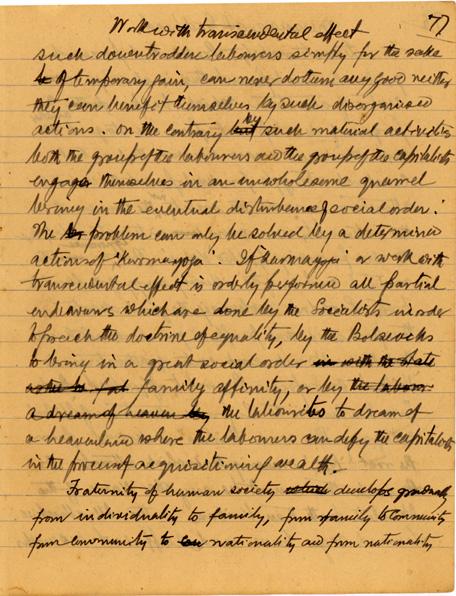 77
Work with transcendental effect
such downtrodden labourers simply for the sake
of temporary gain, can never do them any good neither
they can benefit themselves by such disorganised
actions. On the contrary by such material activities
both the group of the labourers and the group of the capitalists
engage themselves in an unwholesome quarrel
bringing in the eventual disturbance of social order.
The problem can only be solved by a determined
action of 'Karmayoga'. If 'karmayoga' or work with
transcendental effect is orderly performed all partial
endeavours which are done by the Socialists in order
to preach the doctrine of equality, by the Bolseviks
to bring in a great social order in with the state
family affinity, or by the labour
a dream of heaven by the labourites to dream of
a heaven land where the labourers can defy the capitalists
in the process of acquisitioning wealth.
Fraternity of human society develops gradually
from individuality to family, from family to Community
from community to nationality and from nationality